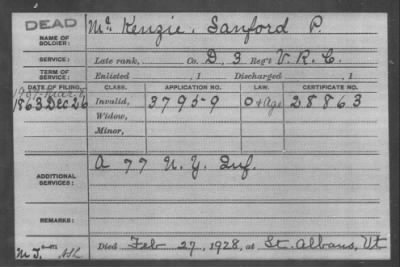 DEAD
NAME OF SOLDIER: McKenzie, Sanford P.
SERVICE: Late rank, Co. D, 3 Reg't V. R. C.
TERM OF SERVICE: Enlisted , 1 Discharged , 1
DATE OF FILING. CLASS. APPLICATION NO. LAW. CERTIFICATE NO.
1863 Dec 26 Invalid, 37959 O + Age 28863
Widow,
Minor,
ADDITIONAL SERVICES: A 77 N. Y. Inf.
REMARKS:
Died Feb 27, 1928, at St. Albans, Vt